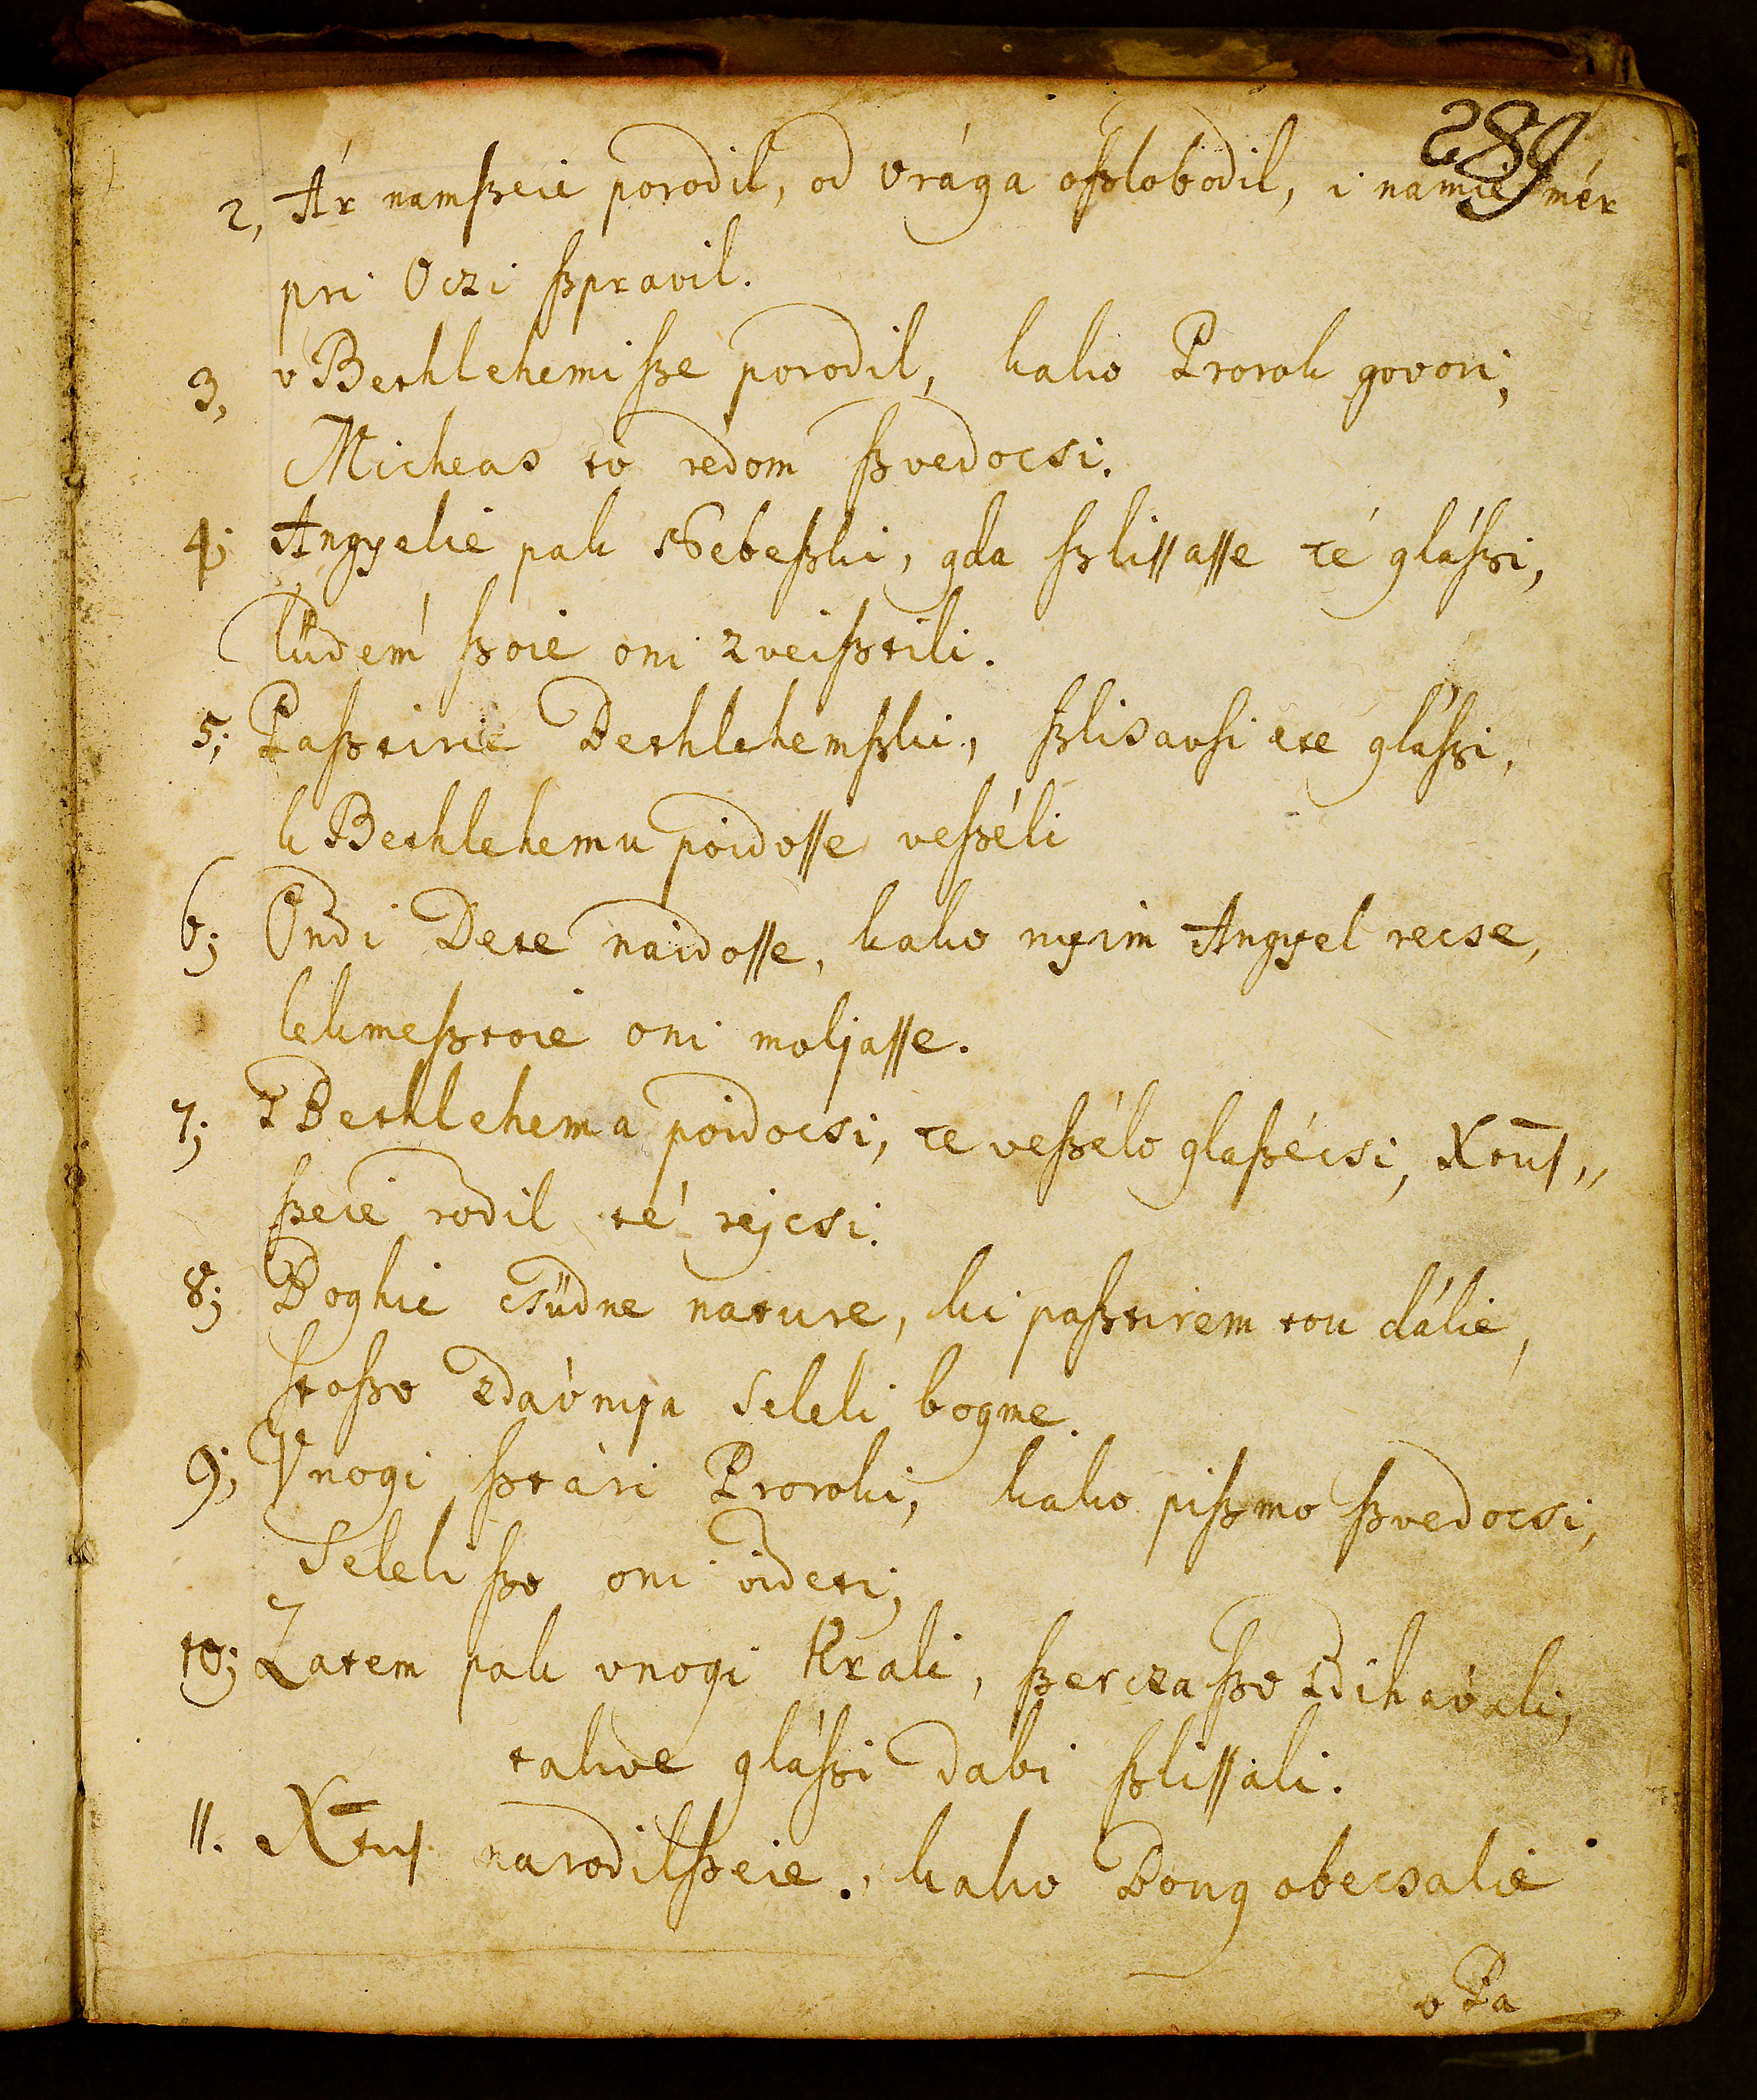 289
2, Ár namſzeie porodil, od vrága oſzlobodil, i namie mér
pri Oczi ſzpravil.
3, v Bethlehemi ſze porodil, kako Prorok govori,
Micheas to rédom ſzvedocsi.
4; Angyelie pak Nebeſzki, gda ſzliſſaſſe té gláſzi,
lüdém ſzoie oni zveiſztili.
5; Paſztirie Bethlehemſzki, ſzlisavſi ete gláſzi,
k Bethlehemu poidoſſe veſzéli
6; Ondi Dete naidoſſe, kako nyim Angyel recse,
lekmeſztoie oni moljaſſe.
7; z Bethlehema poidocsi, te veſzélo glaſzécsi, Xtuſ„
ſzeie rodil té rejcsi.
8; Boghie csüdne nature, ki paſztirem tou dálie,
ſtoſzo zdávnya seleli bogme.
9; Vnogi ſztári Proroki, kako piſzmo ſzvedocsi,
seleli ſzo oni videti;
10; Zatem pak vnogi Krali, ſzercza ſzo zdihávali,
takve gláſzi dabi ſzliſſali.
11. Xtuſ narodilſzeie, kako Boug obecsalie
v Pa